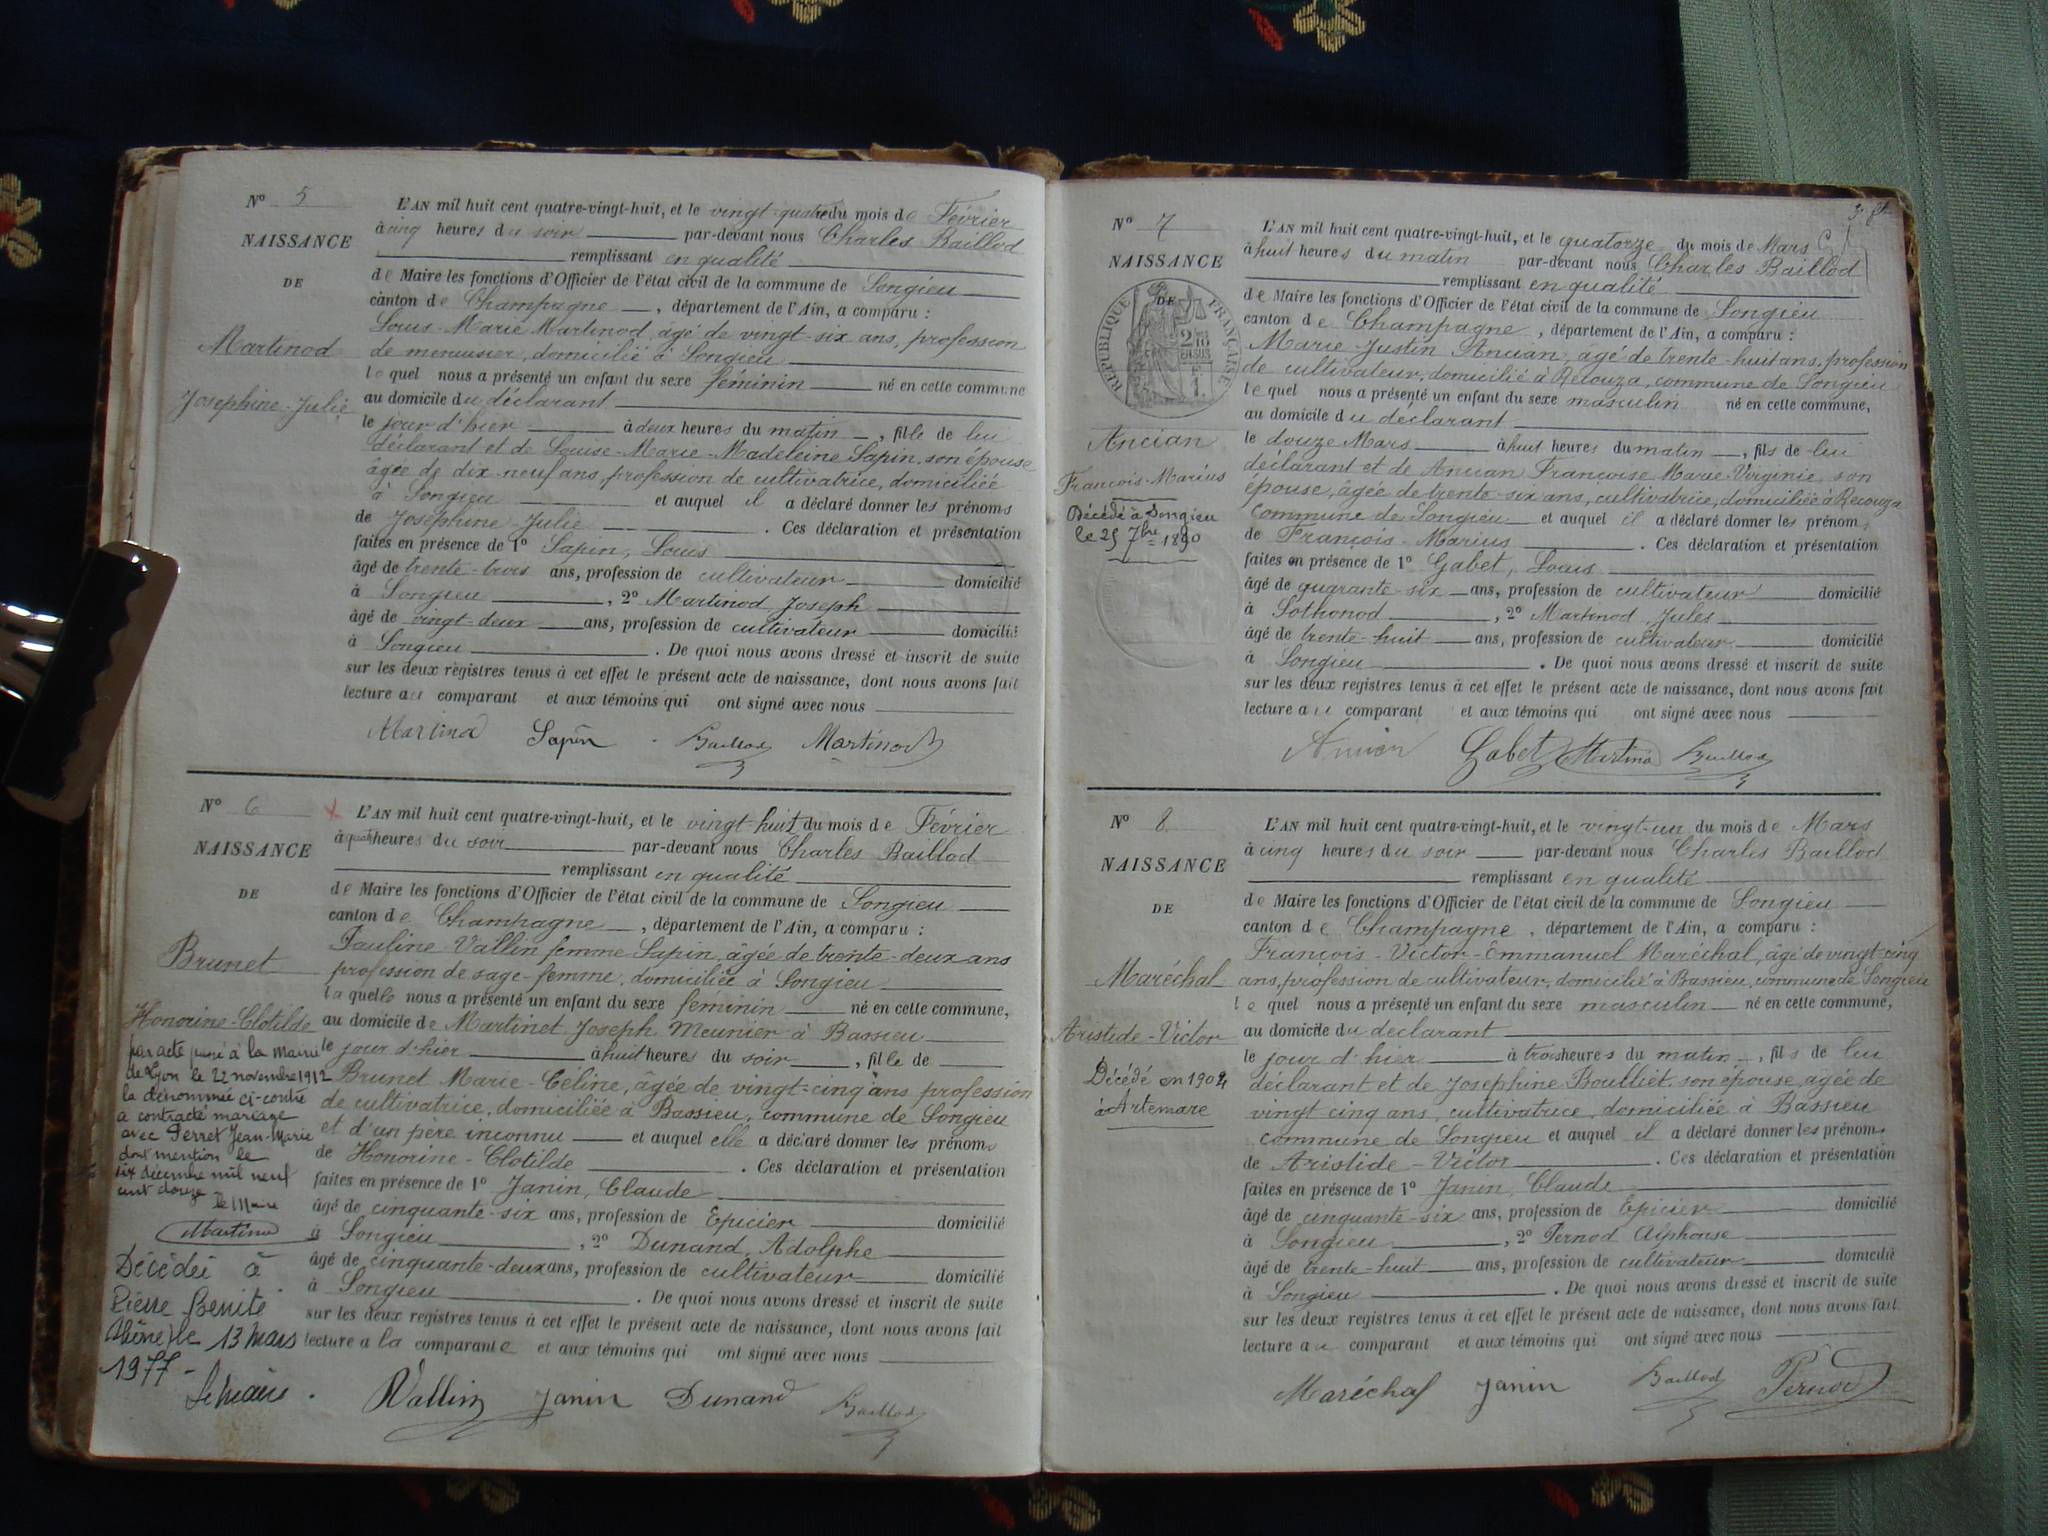 N° 5
NAISSANCE
DE
Martinod
Josephine-Julie
L'AN mil huit cent quatre-vingt-huit, et le vingt-quatre du mois de Février
à cinq heures du soir par-devant nous Charles Baillod
remplissant en qualité
de Maire les fonctions d'Officier de l'état civil de la commune de Songieu
canton de Champagne, département de l'Ain, a comparu :
Louis-Marie Martinod, âgé de vingt-six ans, profession
de menuisier, domicilié à Songieu
lequel nous a présenté un enfant du sexe féminin né en cette commune
au domicile du déclarant
le jour d'hier à deux heures du matin, fille de lui
déclarant et de Louise-Marie-Madeleine Sapin, son épouse
âgée de dix-neuf ans, profession de cultivatrice, domiciliée
à Songieu et auquel il a déclaré donner les prénoms
de Joséphine-Julie. Ces déclaration et présentation
faites en présence de 1° Sapin, Louis
âgé de trente-trois ans, profession de cultivateur domicilié
à Songieu, 2° Martinod, Joseph
âgé de vingt-deux ans, profession de cultivateur domicilié
à Songieu. De quoi nous avons dressé et inscrit de suite
sur les deux registres tenus à cet effet le présent acte de naissance, dont nous avons fait
lecture au comparant et aux témoins qui ont signé avec nous
Martinod Sapin Baillod Martinod
N° 6
NAISSANCE
DE
Brunet
Honorine-Clotilde
par acte passé à la Mairie
de Lyon le 22 novembre 1912
la dénommée ci-contre
a contracté mariage
avec Perret Jean-Marie
dont mention le
six décembre mil neuf
cent douze
Le Maire
Martinod
Décédée à
Pierre Bénite
(Rhône) le 13 mars
1977
Le maire.
L'AN mil huit cent quatre-vingt-huit, et le vingt-huit du mois de Février
à quatre heures du soir par-devant nous Charles Baillod
remplissant en qualité
de Maire les fonctions d'Officier de l'état civil de la commune de Songieu
canton de Champagne, département de l'Ain, a comparu :
Pauline Vallin femme Sapin, âgée de trente-deux ans
profession de sage-femme, domiciliée à Songieu
laquelle nous a présenté un enfant du sexe feminin né en cette commune,
au domicile de Martinet Joseph Meunier à Bassieu
le jour d'hier à huit heures du soir, fille de
Brunet Marie-Céline, âgée de vingt-cinq ans profession
de cultivatrice, domiciliée à Bassieu, commune de Songieu
et d'un père inconnu et auquel elle a déclaré donner les prénoms
de Honorine-Clotilde. Ces déclaration et présentation
faites en présence de 1° Janin, Claude
âgé de cinquante-six ans, profession de Epicier domicilié
à Songieu, 2° Dunand, Adolphe
âgé de cinquante-deux ans, profession de cultivateur domicilié
à Songieu. De quoi nous avons dressé et inscrit de suite
sur les deux registres tenus à cet effet le présent acte de naissance, dont nous avons fait
lecture a la comparante et aux témoins qui ont signé avec nous
Vallin Janin Dunand Baillod
N° 7
NAISSANCE
DE
RÉPUBLIQUE FRANÇAISE
Ancian
François-Marius
Décédé à Songieu
le 25 7bre 1890
L'AN mil huit cent quatre-vingt-huit, et le quatorze du mois de Mars
à huit heures du matin par-devant nous Charles Baillod
remplissant en qualité
de Maire les fonctions d'Officier de l'état civil de la commune de Songieu
canton de Champagne, département de l'Ain, a comparu :
Marie-Justin Ancian, âgé de trente-huit ans, profession
de cultivateur, domicilié à Retouza, commune de Songieu
lequel nous a présenté un enfant du sexe masculin né en cette commune,
au domicile du déclarant
le douze Mars à huit heures du matin, fils de lui
déclarant et de Ancian Françoise Marie Virginie, son
épouse, âgée de trente-six ans, cultivatrice, domiciliée à Recouza
commune de Songieu et auquel il a déclaré donner les prénoms
de François-Marius. Ces déclaration et présentation
faites en présence de 1° Gabet, Louis
âgé de quarante-six ans, profession de cultivateur domicilié
à Sothonod, 2° Martinod, Jules
âgé de trente-huit ans, profession de cultivateur domicilié
à Songieu. De quoi nous avons dressé et inscrit de suite
sur les deux registres tenus à cet effet le présent acte de naissance, dont nous avons fait
lecture au comparant et aux témoins qui ont signé avec nous
Ancian Gabet Martinod Baillod
N° 8
NAISSANCE
DE
Maréchal
Aristide-Victor
Décédé en 1904
à Artemare
L'AN mil huit cent quatre-vingt-huit, et le vingt-un du mois de Mars
à cinq heures du soir par-devant nous Charles Baillod
remplissant en qualité
de Maire les fonctions d'Officier de l'état civil de la commune de Songieu
canton de Champagne, département de l'Ain, a comparu :
François-Victor-Emmanuel Maréchal, âgé de vingt-cinq
ans, profession de cultivateur, domicilié à Bassieu, commune de Songieu
lequel nous a présenté un enfant du sexe masculin né en cette commune,
au domicile du déclarant
le jour d'hier à trois heures du matin, fils de lui
déclarant et de Josephine Boulliet, son épouse, agée de
vingt cinq ans, cultivatrice, domiciliée à Bassieu
commune de Songieu et auquel il a déclaré donner les prénoms
de Aristide-Victor. Ces déclaration et présentation
faites en présence de 1° Janin, Claude
âgé de cinquante-six ans, profession de Epicier domicilié
à Songieu, 2° Pernod Alphonse
âgé de trente-huit ans, profession de cultivateur domicilié
à Songieu. De quoi nous avons dressé et inscrit de suite
sur les deux registres tenus à cet effet le présent acte de naissance, dont nous avons fait
lecture au comparant et aux témoins qui ont signé avec nous
Maréchal Janin Baillod Pernod